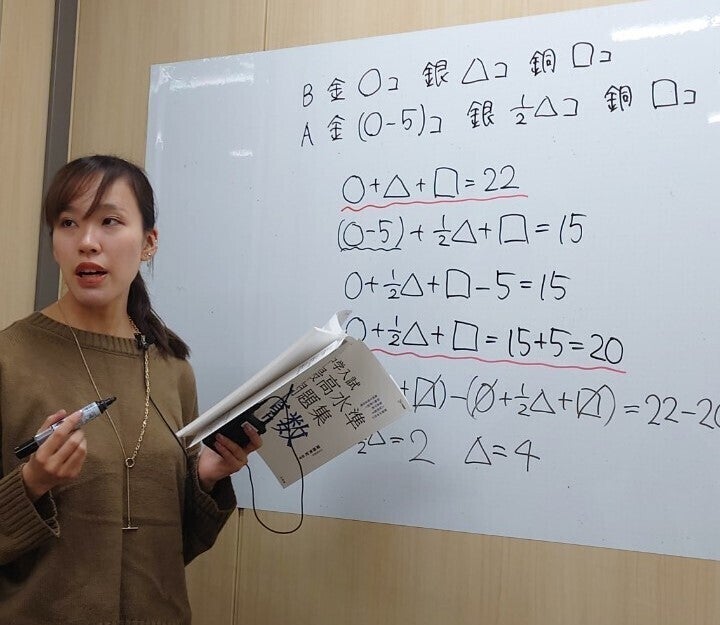 B 金 ○コ 銀 △コ 銅 □コ
A 金 (○-5)コ 銀 1/2△コ 銅 □コ
○+△+□=22
(○-5)+1/2△+□=15
○+1/2△+□-5=15
○+1/2△+□=15+5=20
+□)-(○+1/2△+□)=22-20
1/2△=2 △=4
学入試
最高水準
問題集
算数